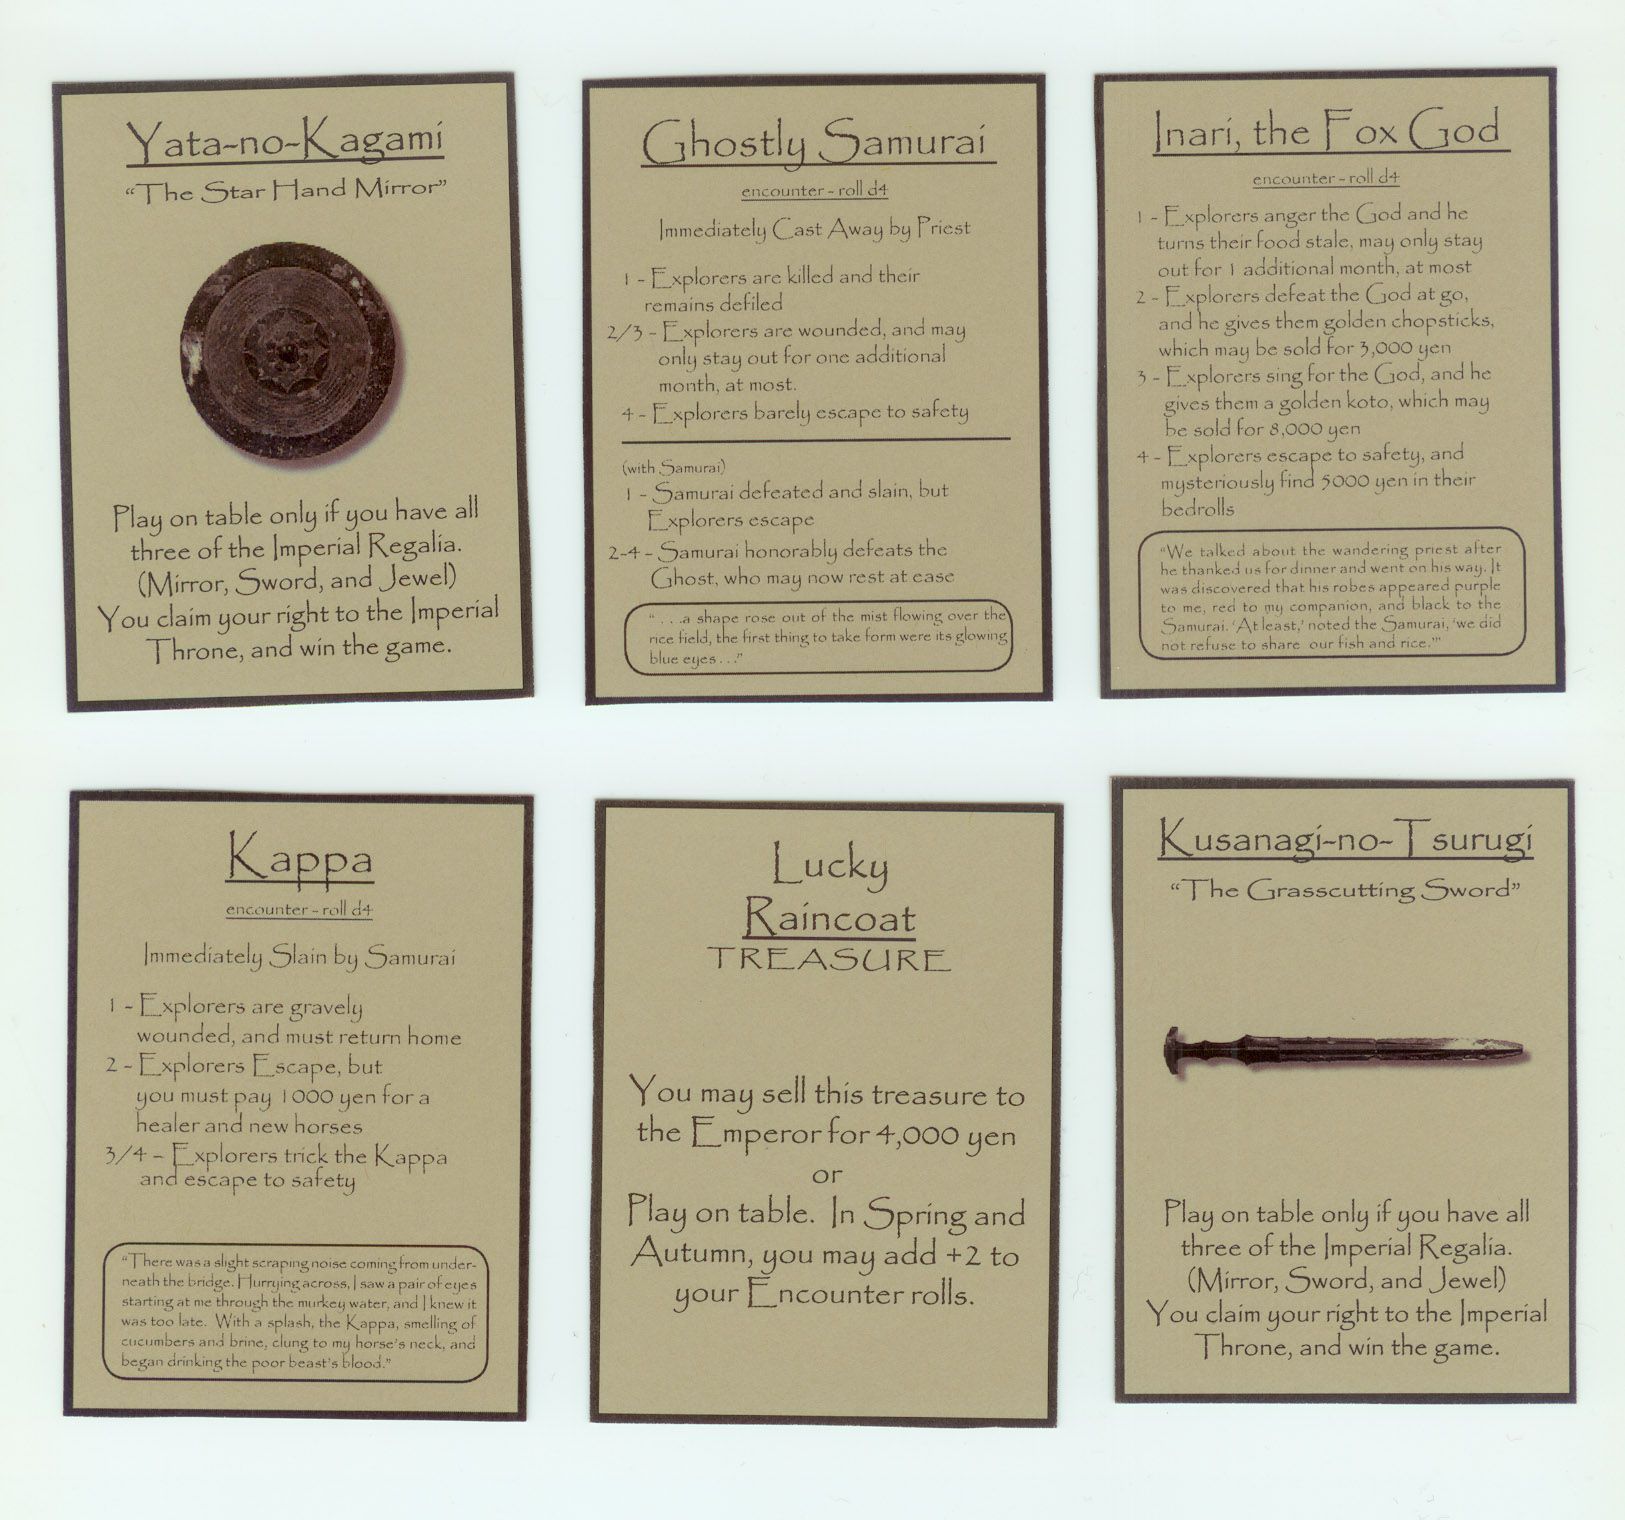 Yata-no-Kagami
“The Star Hand Mirror”
Play on table only if you have all
three of the Imperial Regalia.
(Mirror, Sword, and Jewel)
You claim your right to the Imperial
Throne, and win the game.
Ghostly Samurai
encounter - roll d4
Immediately Cast Away by Priest
1 - Explorers are killed and their
remains defiled
2/3 - Explorers are wounded, and may
only stay out for one additional
month, at most.
4 - Explorers barely escape to safety
(with Samurai)
1 - Samurai defeated and slain, but
Explorers escape
2-4 - Samurai honorably defeats the
Ghost, who may now rest at ease
“ . . .a shape rose out of the mist flowing over the
rice field, the first thing to take form were its glowing
blue eyes . . .”
Inari, the Fox God
encounter - roll d4
1 - Explorers anger the God and he
turns their food stale, may only stay
out for 1 additional month, at most
2 - Explorers defeat the God at go,
and he gives them golden chopsticks,
which may be sold for 3,000 yen
3 - Explorers sing for the God, and he
gives them a golden koto, which may
be sold for 8,000 yen
4 - Explorers escape to safety, and
mysteriously find 5000 yen in their
bedrolls
“We talked about the wandering priest after
he thanked us for dinner and went on his way. It
was discovered that his robes appeared purple
to me, red to my companion, and black to the
Samurai. ‘At least,’ noted the Samurai, ‘we did
not refuse to share our fish and rice.’”
Kappa
encounter - roll d4
Immediately Slain by Samurai
1 - Explorers are gravely
wounded, and must return home
2 - Explorers Escape, but
you must pay 1000 yen for a
healer and new horses
3/4 - Explorers trick the Kappa
and escape to safety
“There was a slight scraping noise coming from under-
neath the bridge. Hurrying across, I saw a pair of eyes
starting at me through the murkey water, and I knew it
was too late. With a splash, the Kappa, smelling of
cucumbers and brine, clung to my horse’s neck, and
began drinking the poor beast’s blood.”
Lucky
Raincoat
TREASURE
You may sell this treasure to
the Emperor for 4,000 yen
or
Play on table. In Spring and
Autumn, you may add +2 to
your Encounter rolls.
Kusanagi-no-Tsurugi
“The Grasscutting Sword”
Play on table only if you have all
three of the Imperial Regalia.
(Mirror, Sword, and Jewel)
You claim your right to the Imperial
Throne, and win the game.